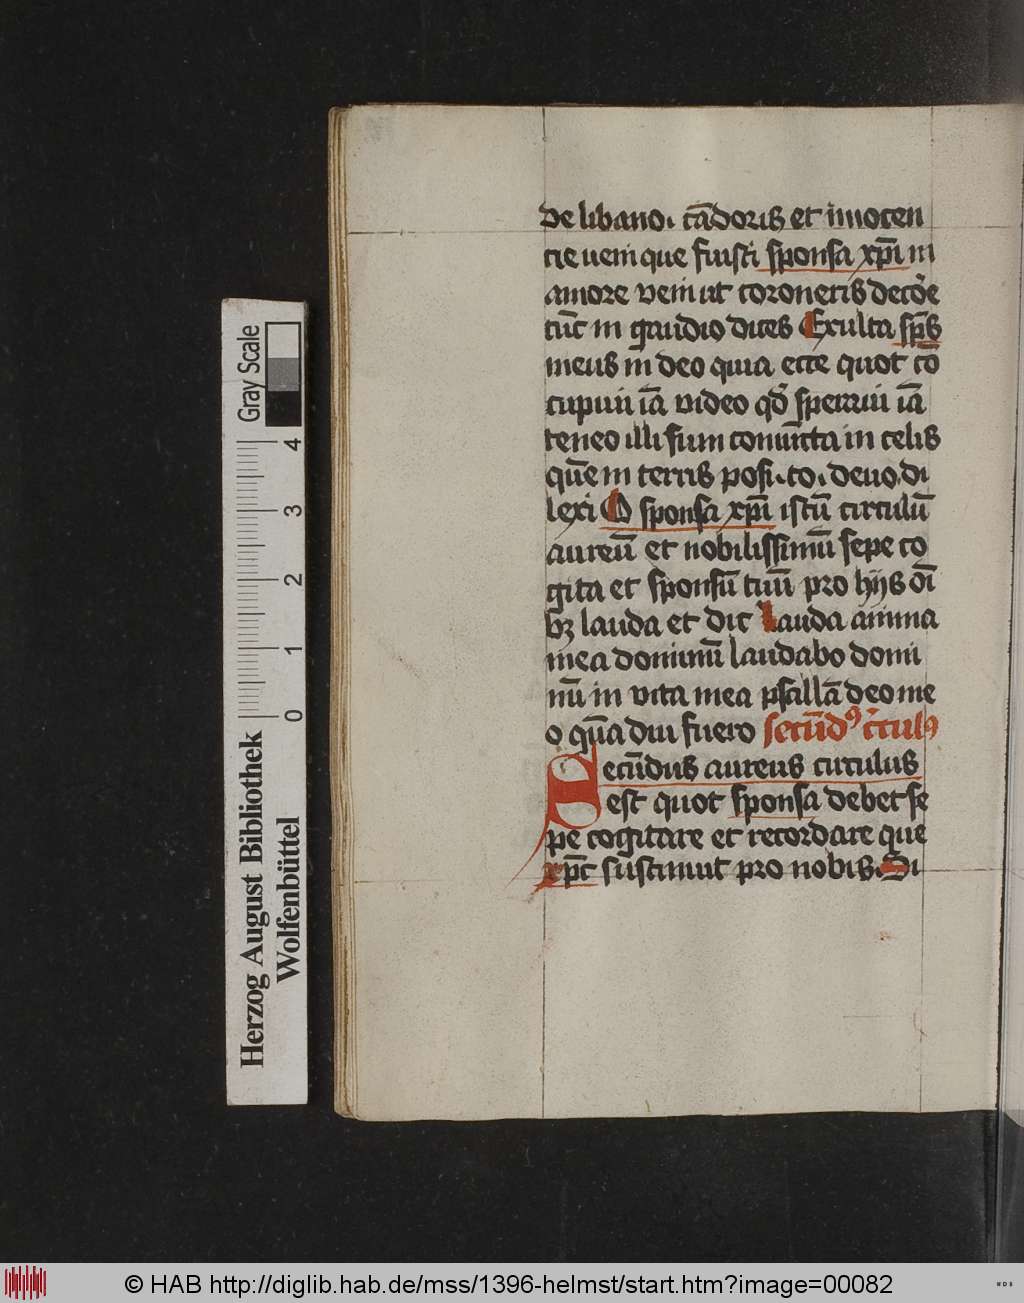 de libano. cādoris et īnocen
cie veni que fuisti sponsa xp̄i in
amore veni ut coroneris decōe
tūc in gaudio dices Exulta sp̄s
meus in deo quia ecce quot cō
cupiui iā video qd̄ speraui iā
teneo illi sum coniūcta in celis
quē in terris posi.to. deuo. di
lexi O sponsa xp̄i istū circulū
aureū et nobilissimū sepe co
gita et sponsū tuū pro hijs oī
bꝫ lauda et dic Lauda anima
mea dominū laudabo domi
nū in vita mea psallā deo me
o quādiu fuero secūdꝰ c̄rculꝰ
Secūdus aureus circulus
est quot sponsa debet se
pe cogitare et recordare que
xp̄c sustinuit pro nobis. Si
Gray Scale
4 3 2 1 0
Herzog August Bibliothek
Wolfenbüttel
© HAB http://diglib.hab.de/mss/1396-helmst/start.htm?image=00082
WDB